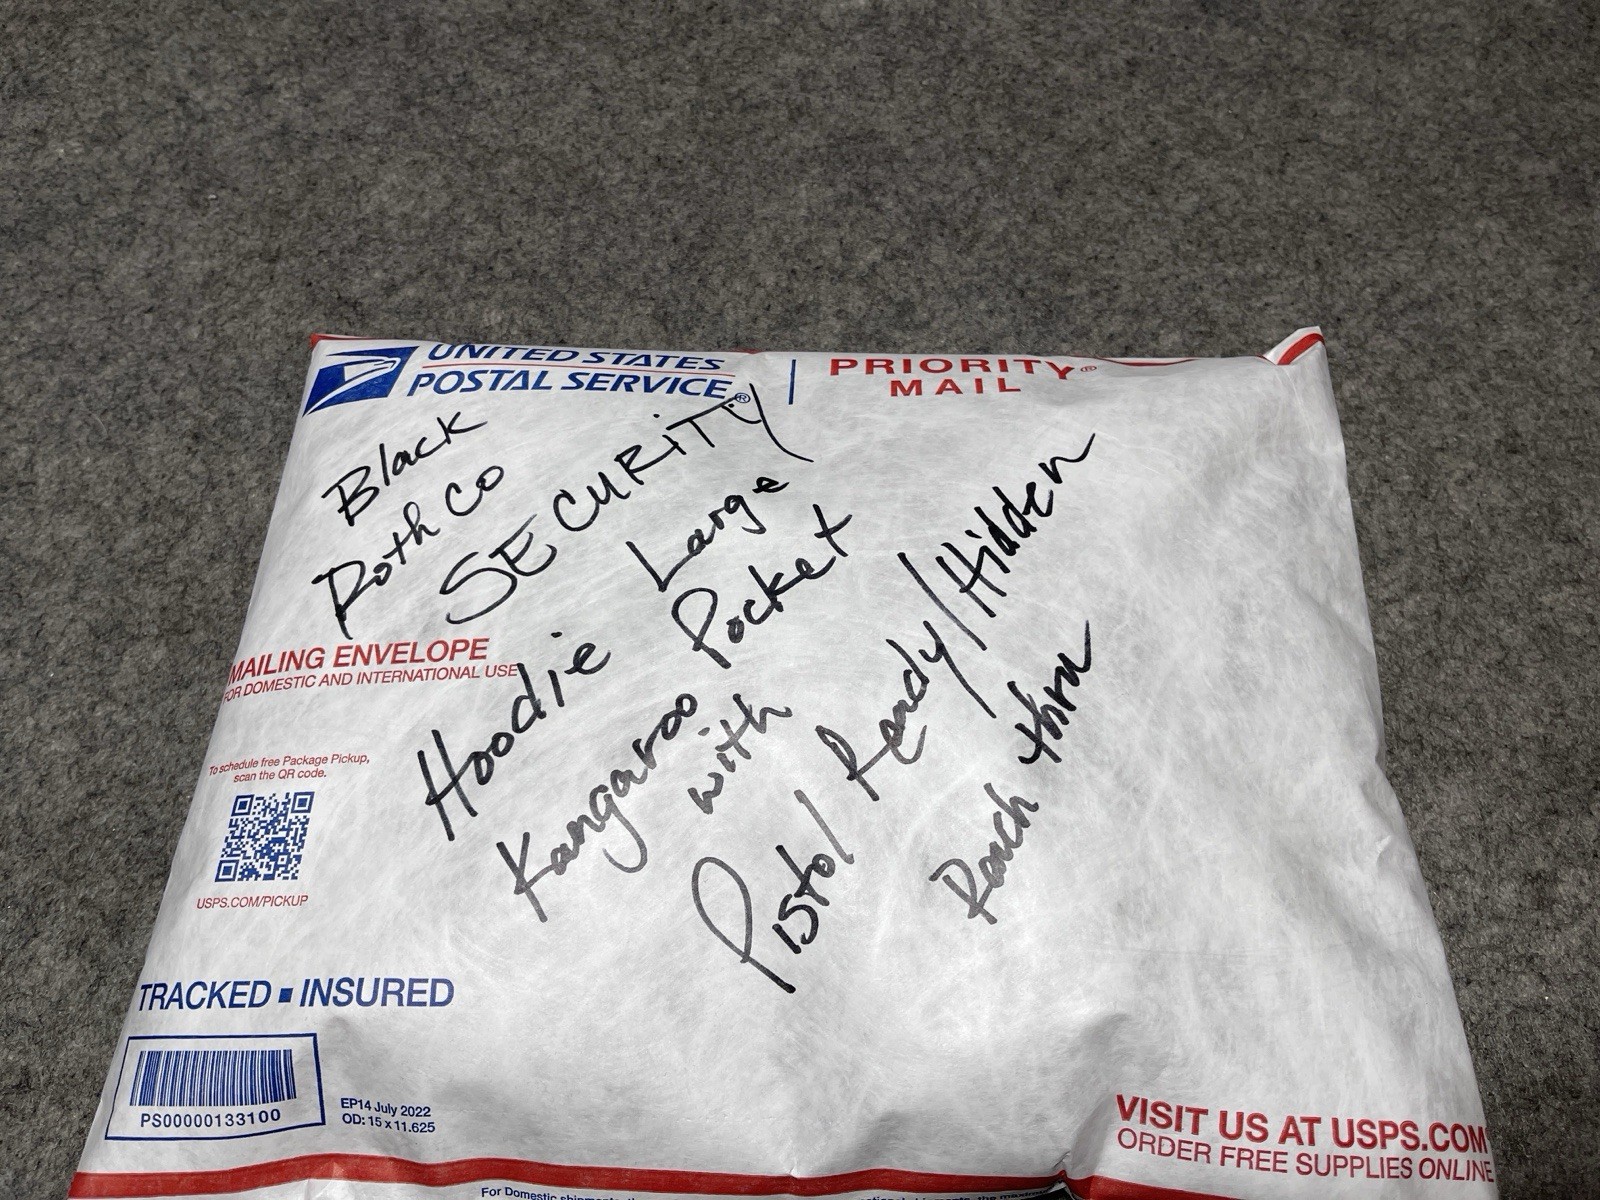 UNITED STATES
POSTAL SERVICE®
PRIORITY®
MAIL
Black
RothCo
SECURITY
Hoodie
Large
Kangaroo Pocket
with
Pistol Ready/Hidden
Reach thru
MAILING ENVELOPE
FOR DOMESTIC AND INTERNATIONAL USE
To schedule free Package Pickup,
scan the QR code.
USPS.COM/PICKUP
TRACKED ▪ INSURED
PS00000133100
EP14 July 2022
OD: 15 x 11.625
VISIT US AT USPS.COM
ORDER FREE SUPPLIES ONLINE
For Domestic shipments, the